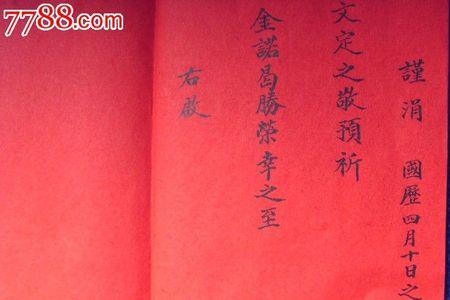 7788.com
謹涓 國歷四月十日之
文定之敬預祈
金諾曷勝榮幸之至
右啟